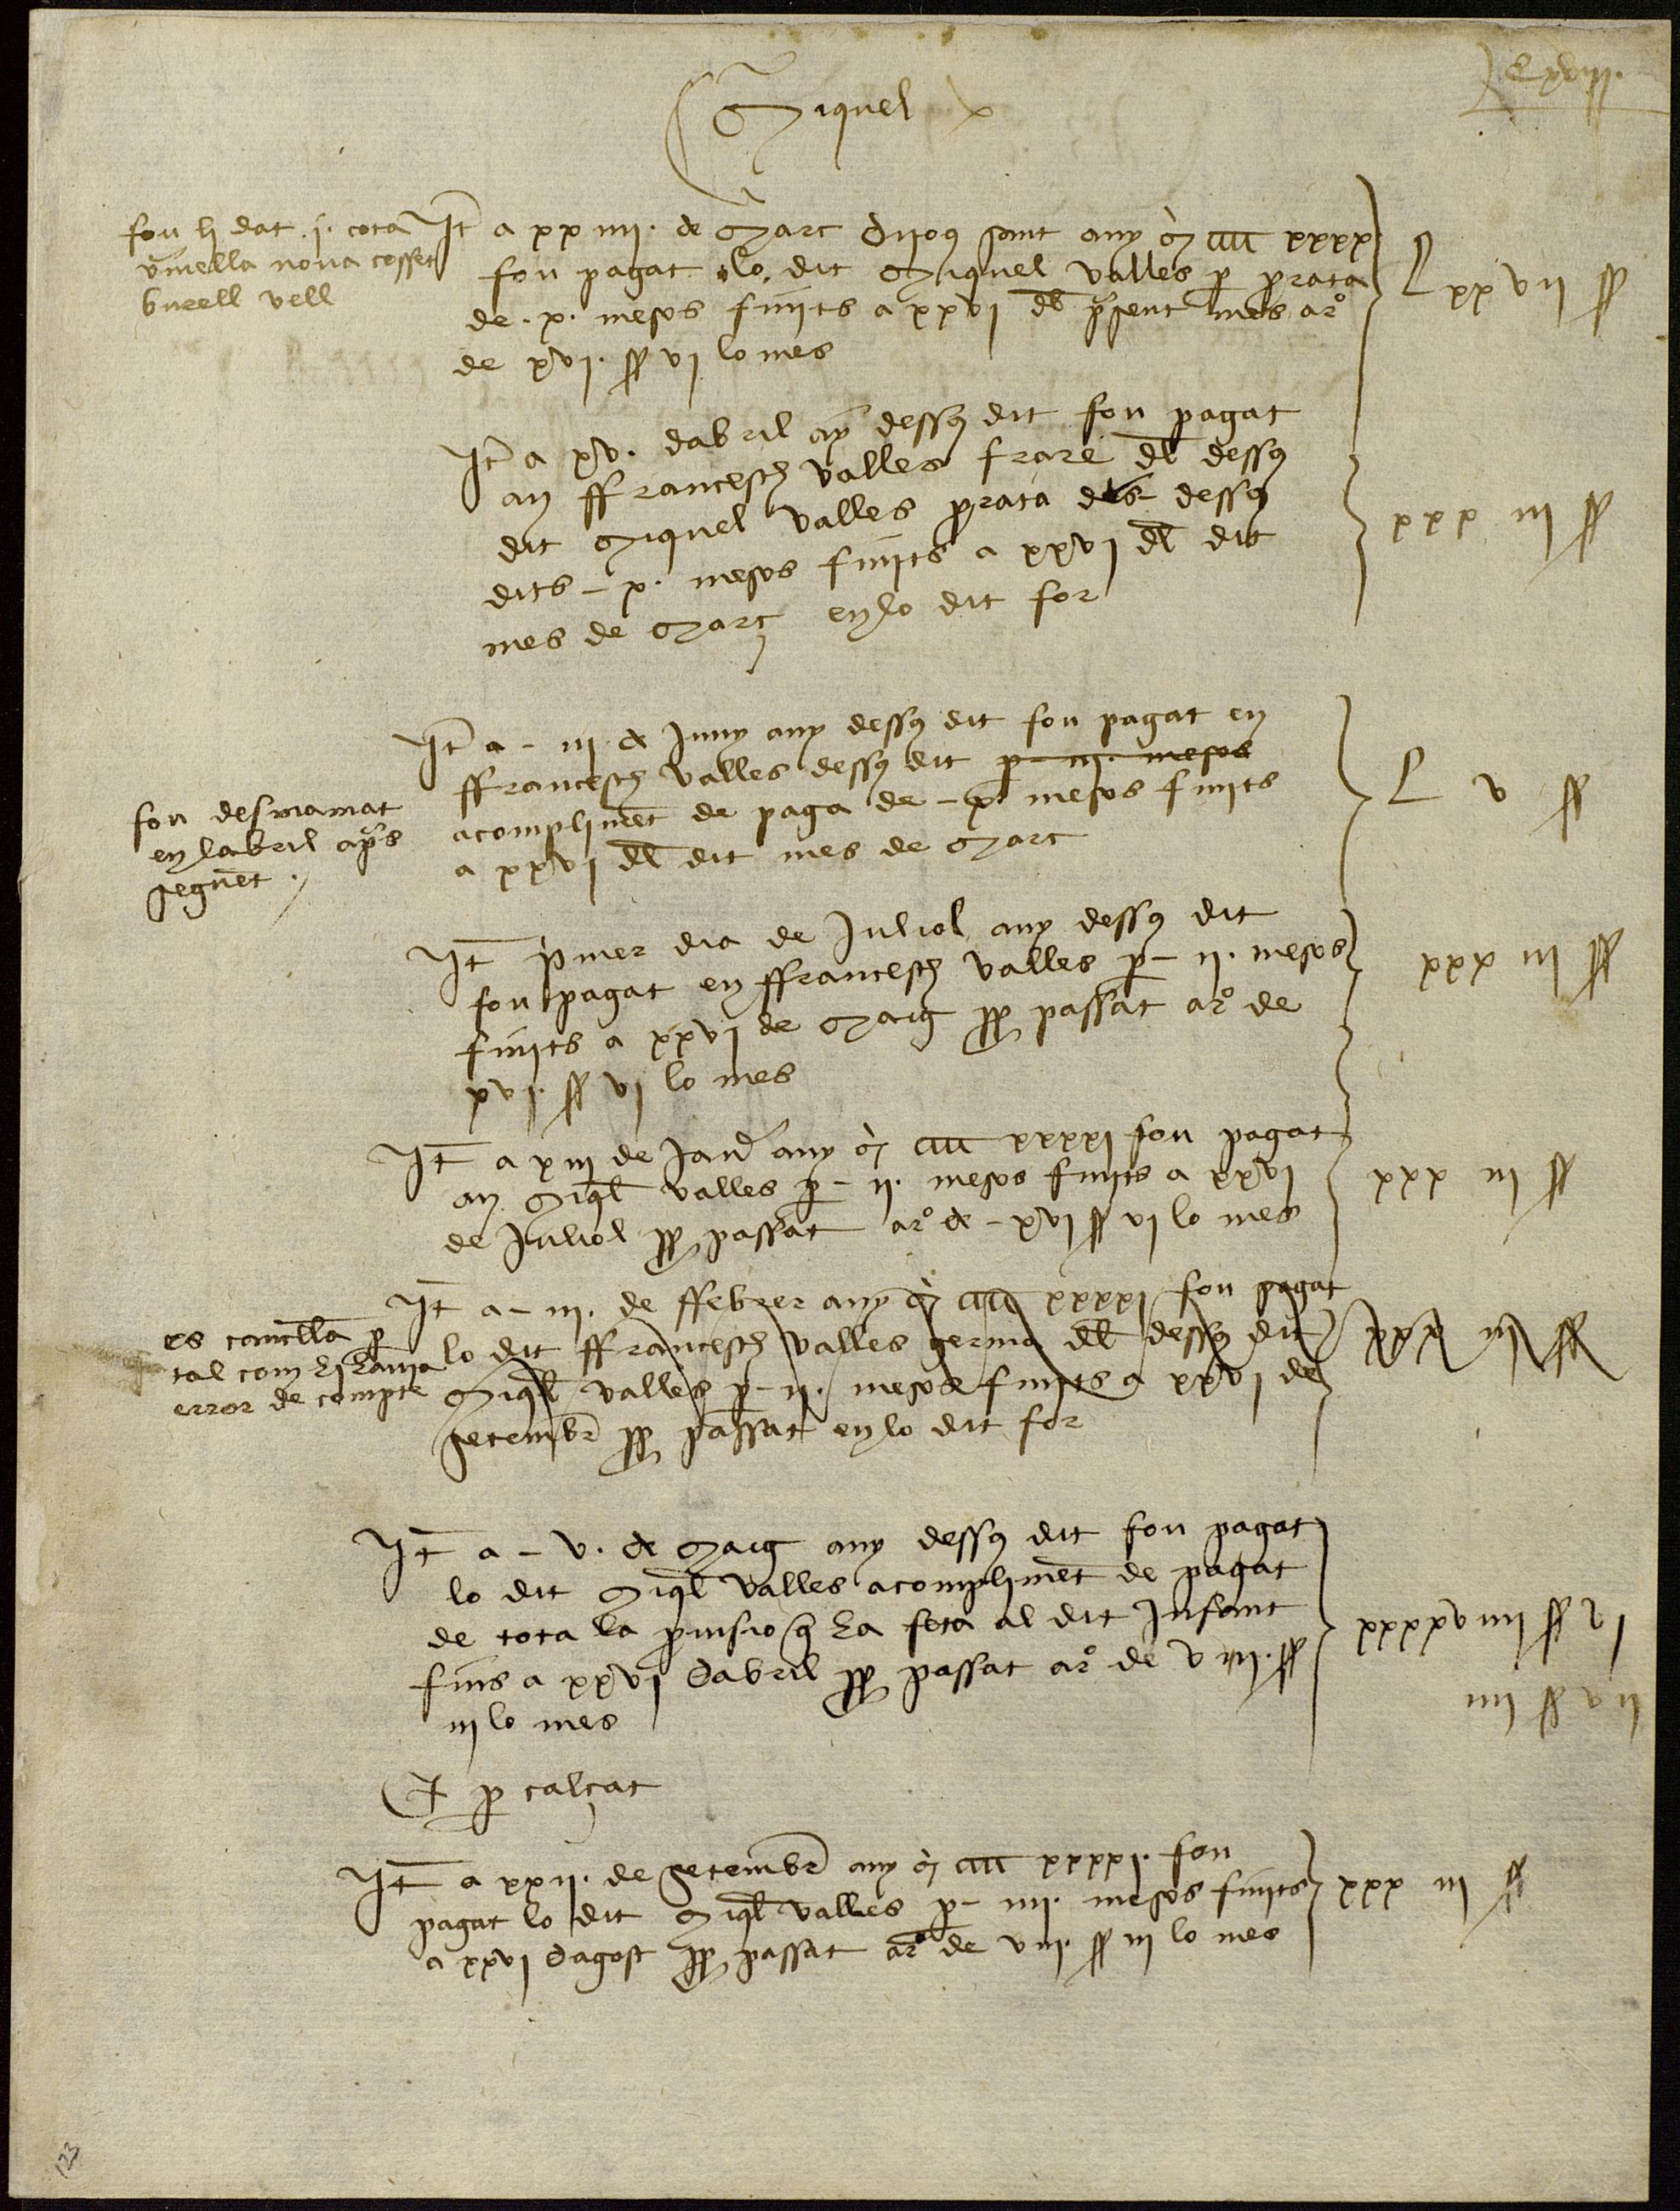 Miquel x
fou li dat .j. cota
vmella nova cosset
burell vell
It a xxiiii. de Març dijous sant any M CCCC xxxx
fou pagat lo dit Miquel valles p prata
de .x. mesos finits a xxvj dl present mes ar°
de xvj. ss vj lo mes
It a xv. dabril any dessus dit fou pagat
an ffrancesch valles frare dl dessus
dit Miquel valles prata dels dessus
dits - x. mesos finits a xxvj dl dit
mes de Març en lo dit for
It a - iij de Juny any dessus dit fou pagat en
ffrancesch valles dessus dit p - iij. mesos
acompliment de paga de - x. mesos finits
a xxvj dl dit mes de Març
fou desmamat
en labril apres
seguent.
It primer dia de Juliol any dessus dit
fou pagat en ffrancesch valles p - ij. mesos
finits a xxvj de Maig pp passat ar° de
xvj. ss vj lo mes
It a xiij de Janer any M CCCC xxxxj fou pagat
an Miql valles p - ij. mesos finits a xxvj
de Juliol pp passat ar° de - xvj ss vj lo mes
It a - iij. de ffebrer any M CCCC xxxxj fou pagat
lo dit ffrancesch valles germa dl dessus dit
Miql valles p - ij. mesos finits a xxvj de
setembr pp passat en lo dit for
es cancella p
tal com hi havia
error de compte
It a - v. de Maig any dessus dit fou pagat
lo dit Miql valles acompliment de pagat
de tota la provisio q ha feta al dit Infant
fins a xxvj dabril pp passat ar° de viij. ss
iij lo mes
It p calçat
It a xxij. de setembr any M CCCC xxxxj. fou
pagat lo dit Miql valles p - iiij. mesos finits
a xxvj dagost pp passat ar° de viij. ss iij lo mes
xxx iij ss
xxx iij ss
xxx iij ss
xxx iij ss
123